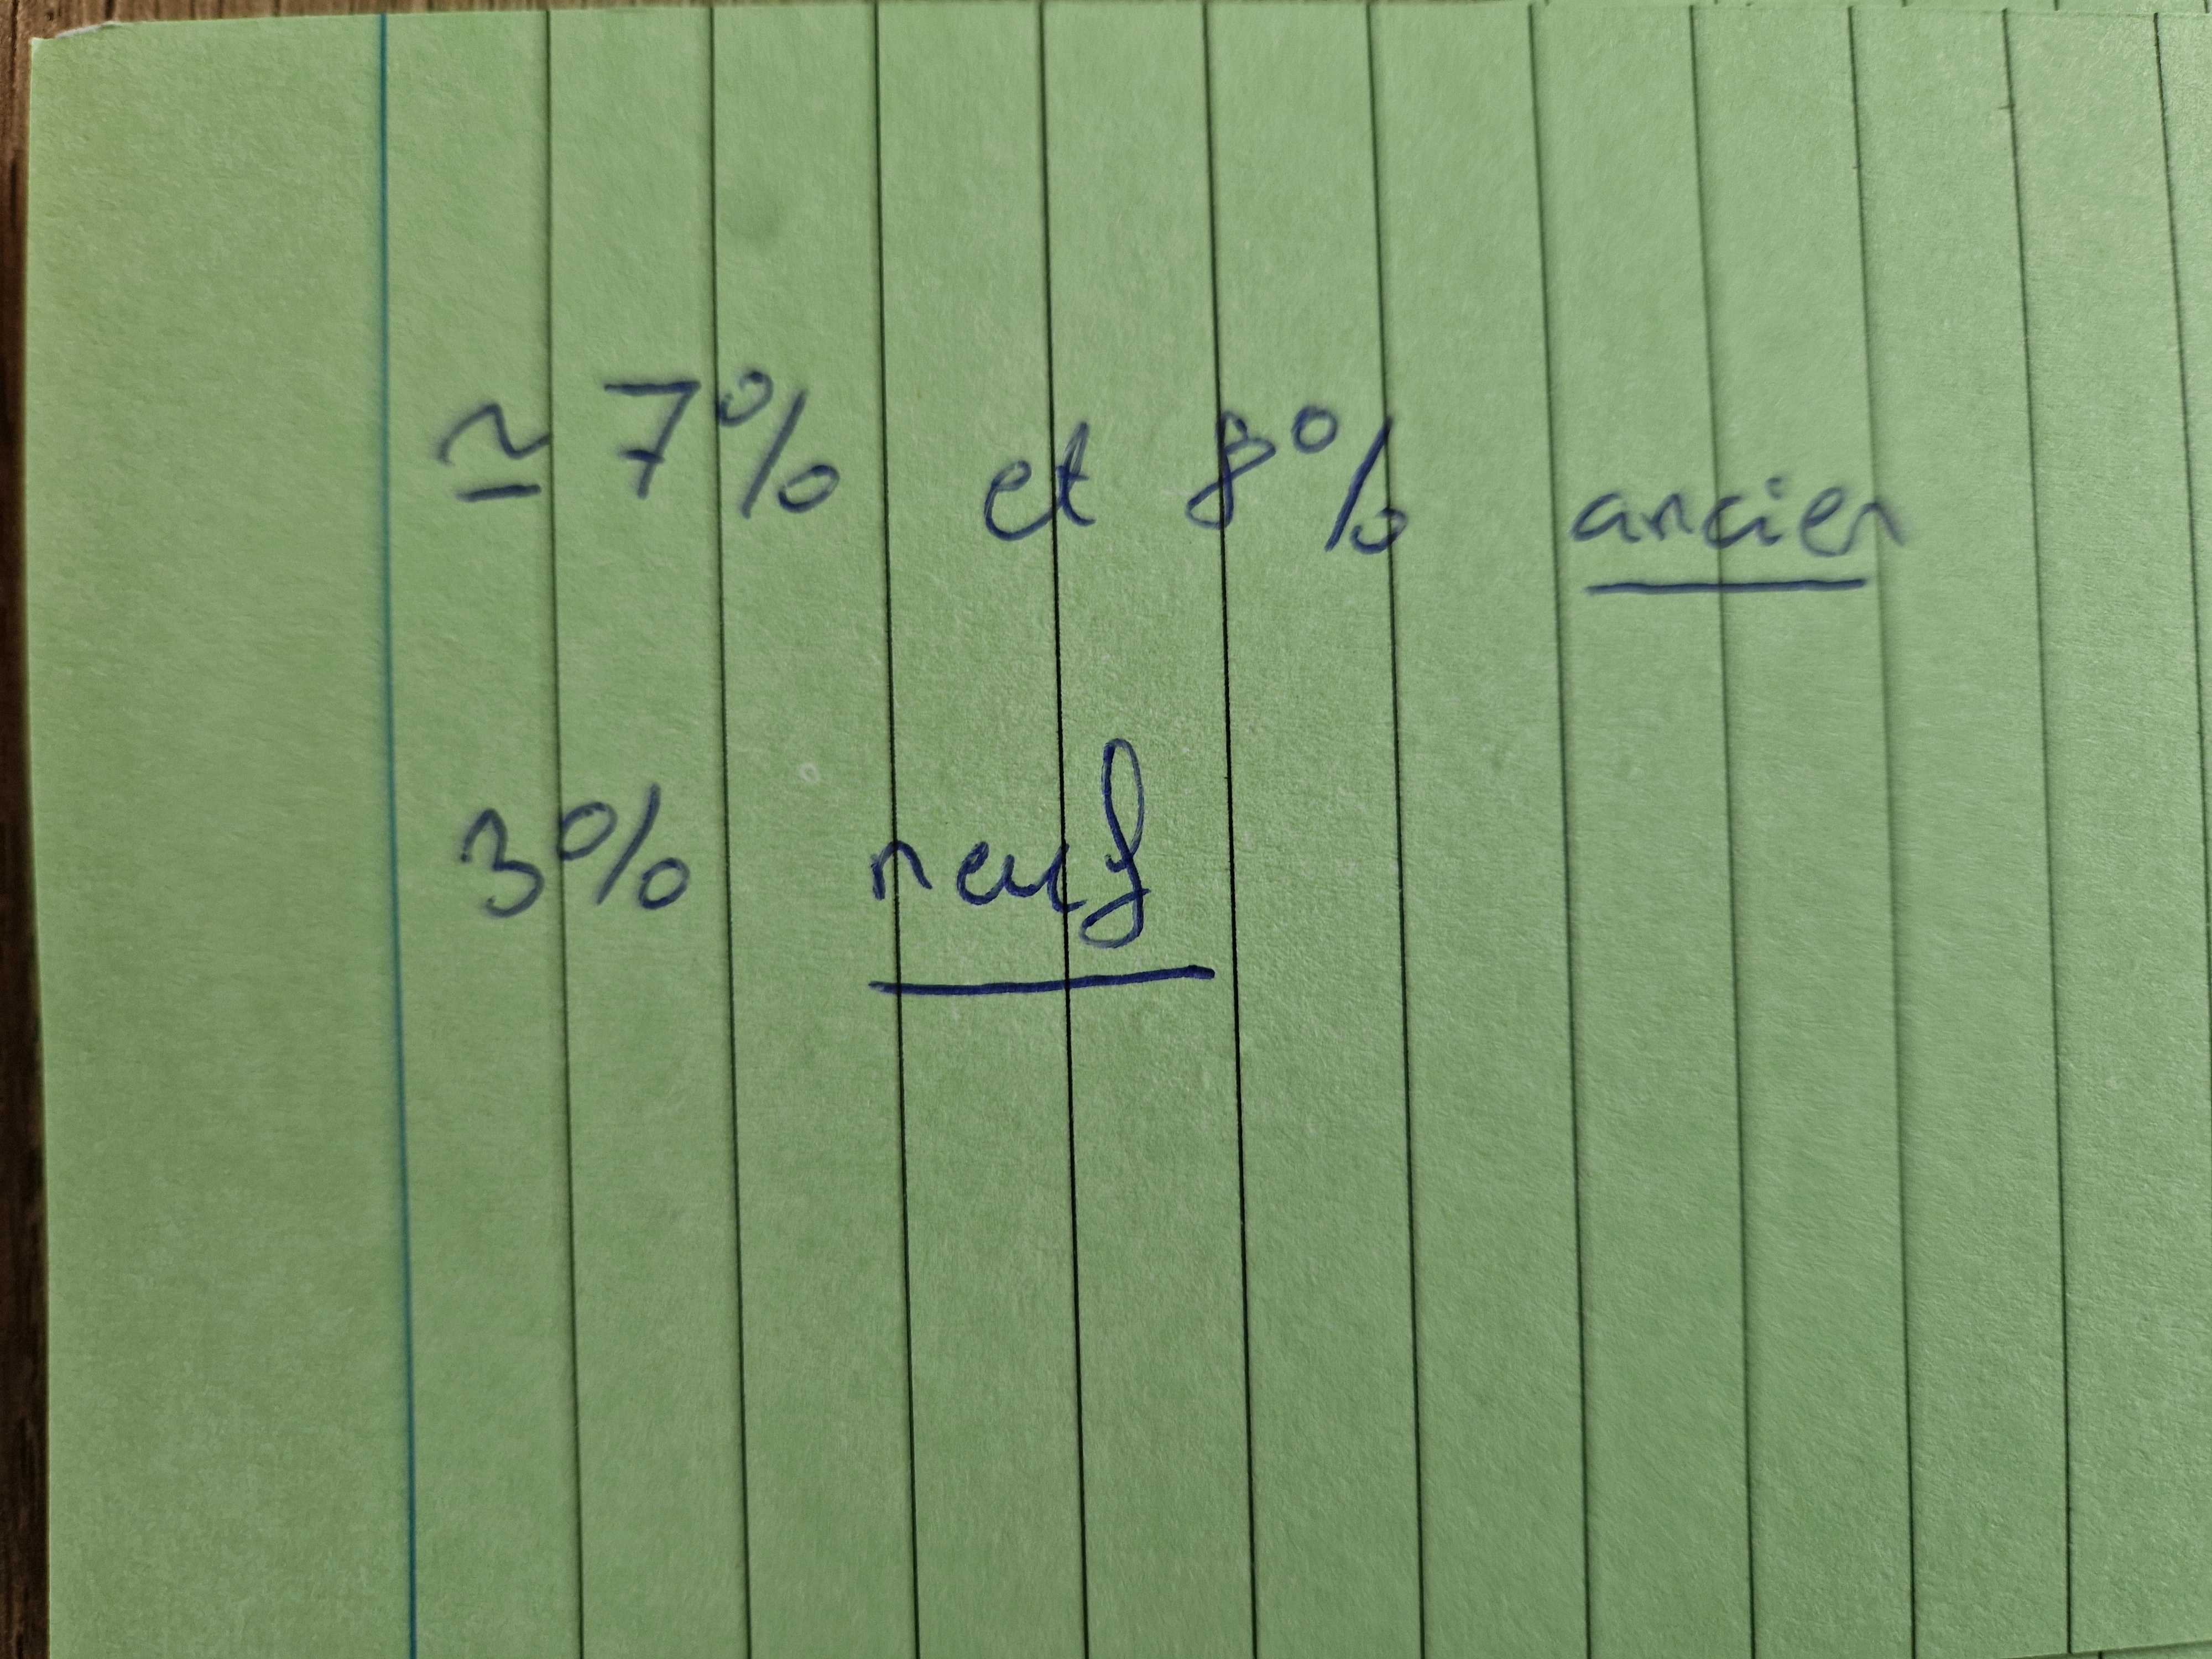 ≃ 7% et 8% ancien
3% neuf